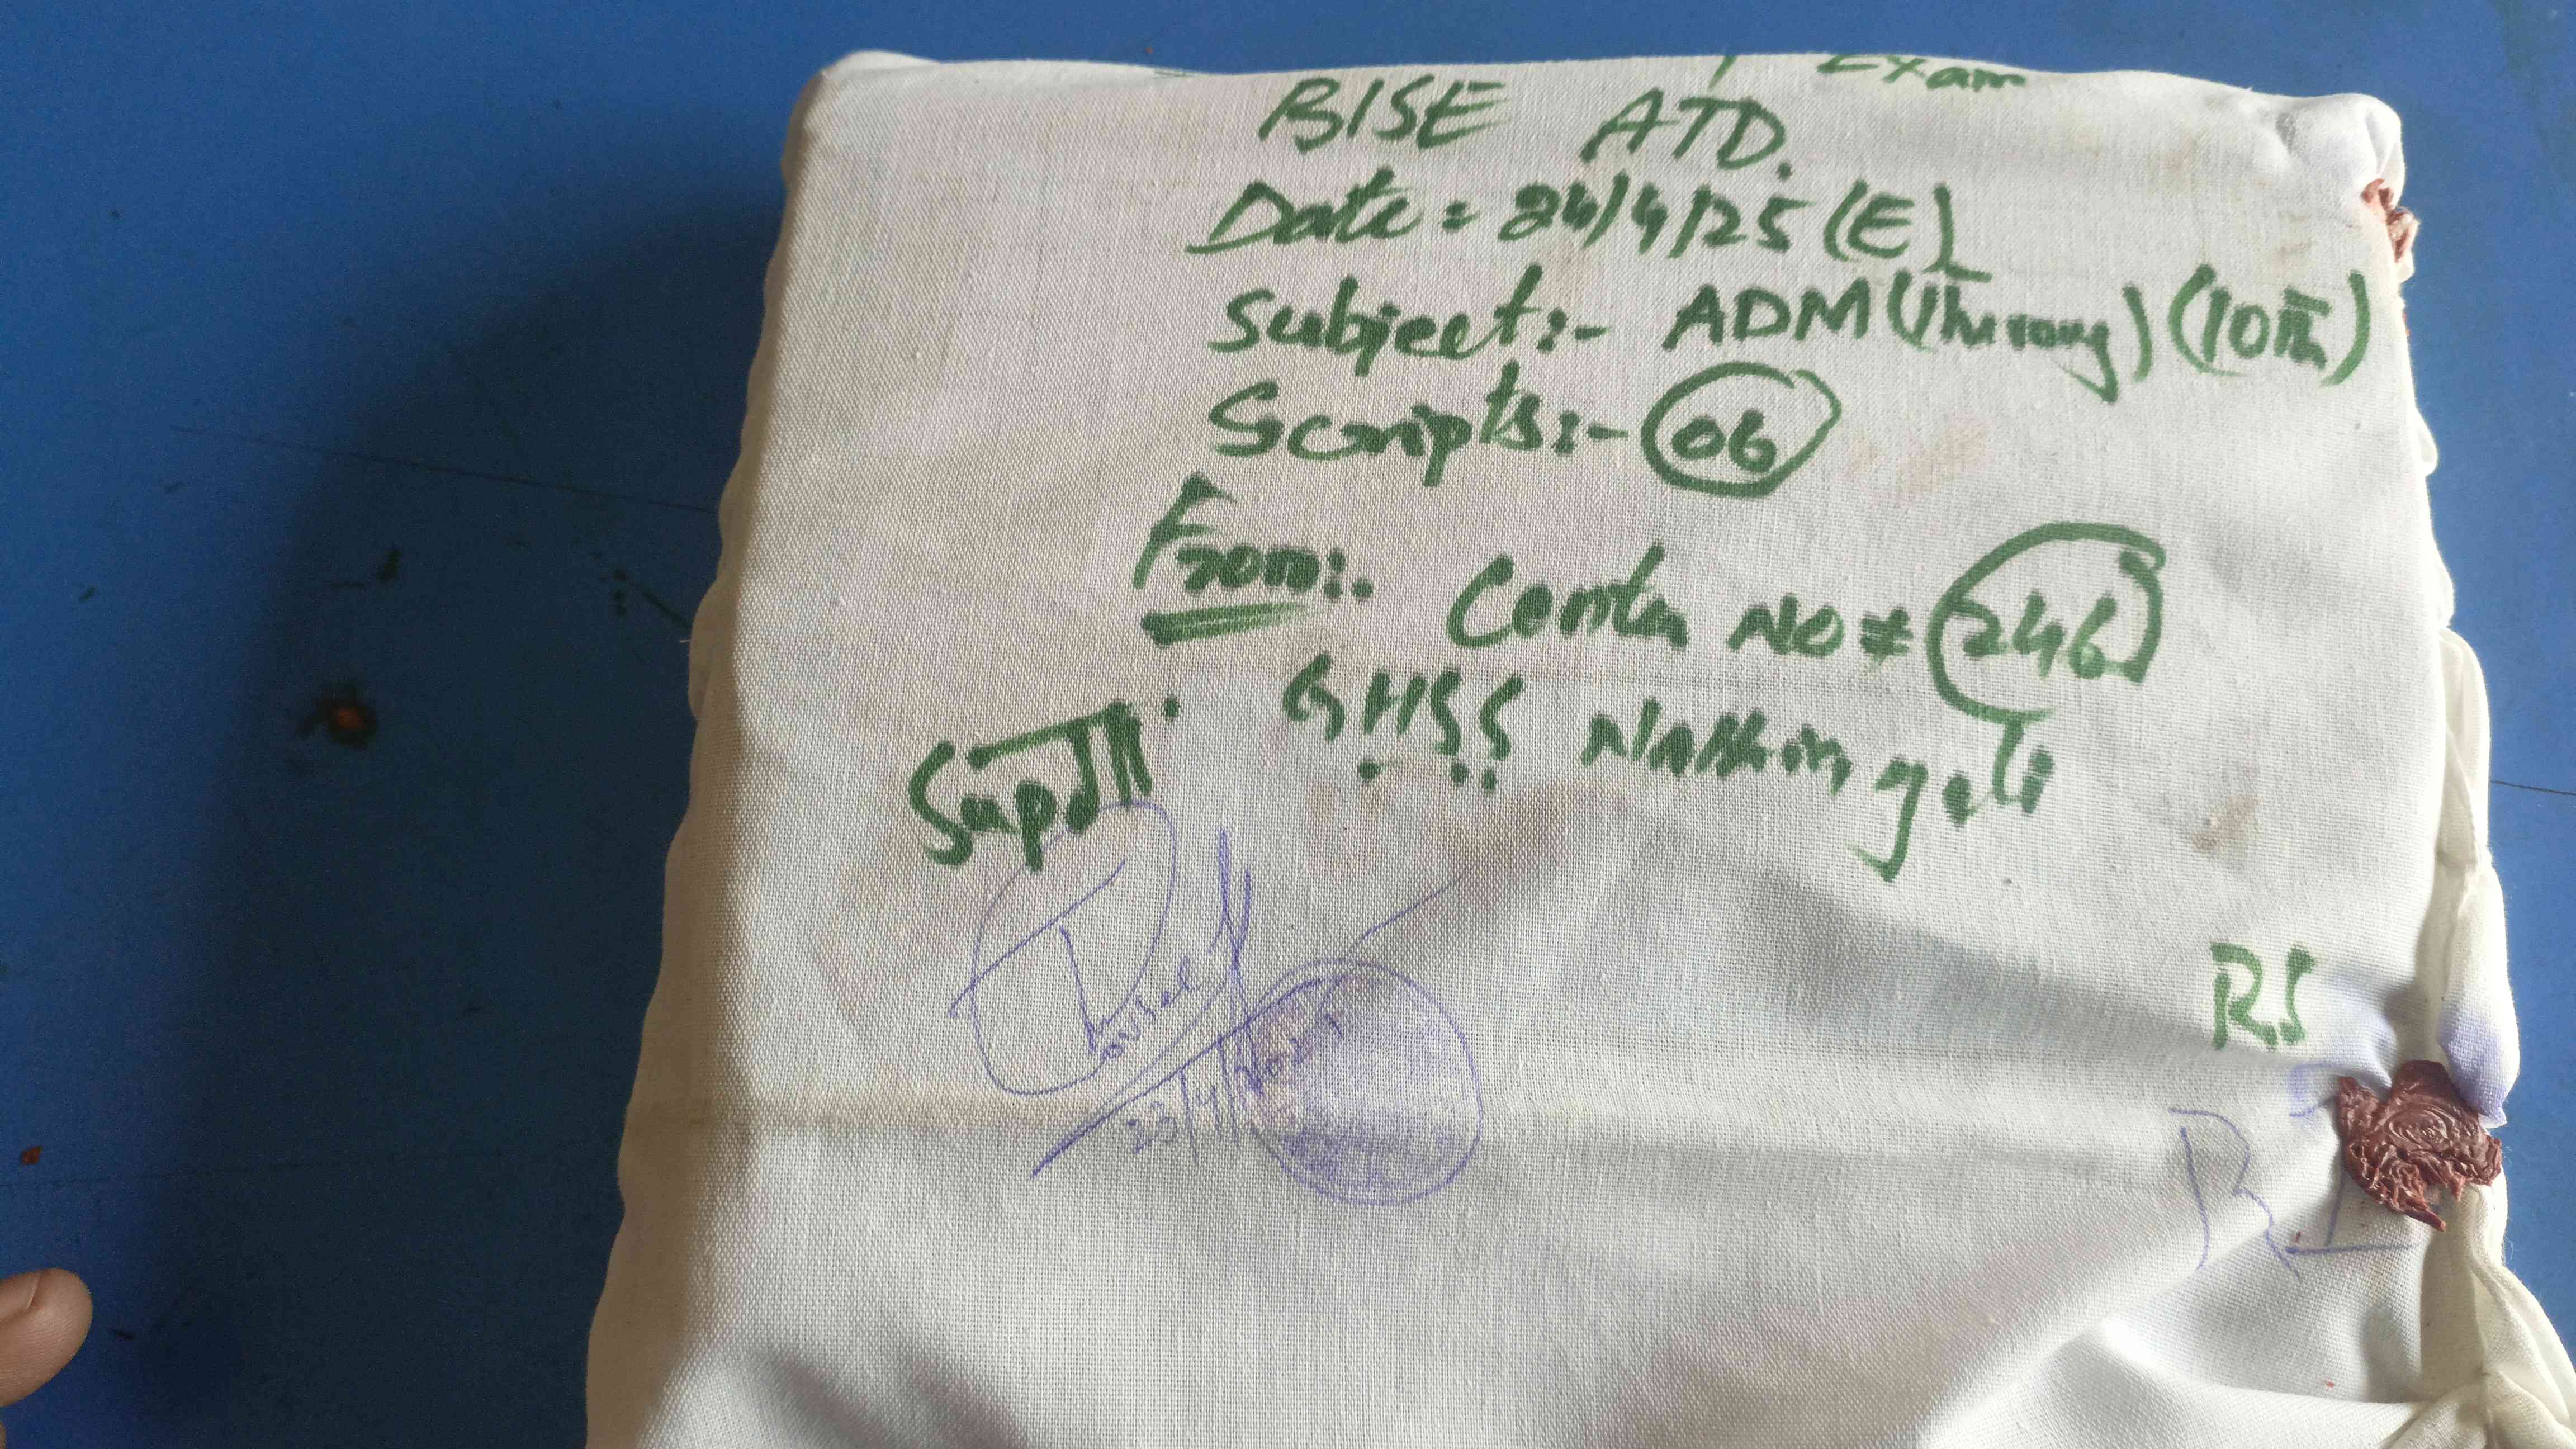 Exam
BISE ATD.
Date = 24/4/25 (E)
Subject:- ADM (Theory) (10th)
Scripts:- 06
From:- Center No # 246
GHSS Nathia gali
Supdtt.
23/4/2025
R.S